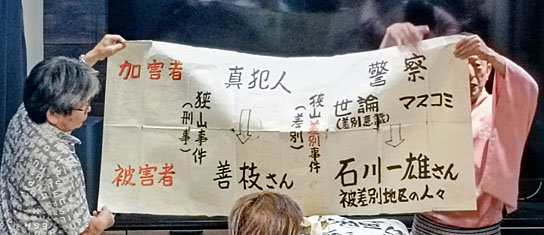 加害者 真犯人 警察
世論 マスコミ
(差別意識)
狭山事件
(刑事)
狭山差別事件
(差別)
被害者 善枝さん 石川一雄さん
被差別地区の人々